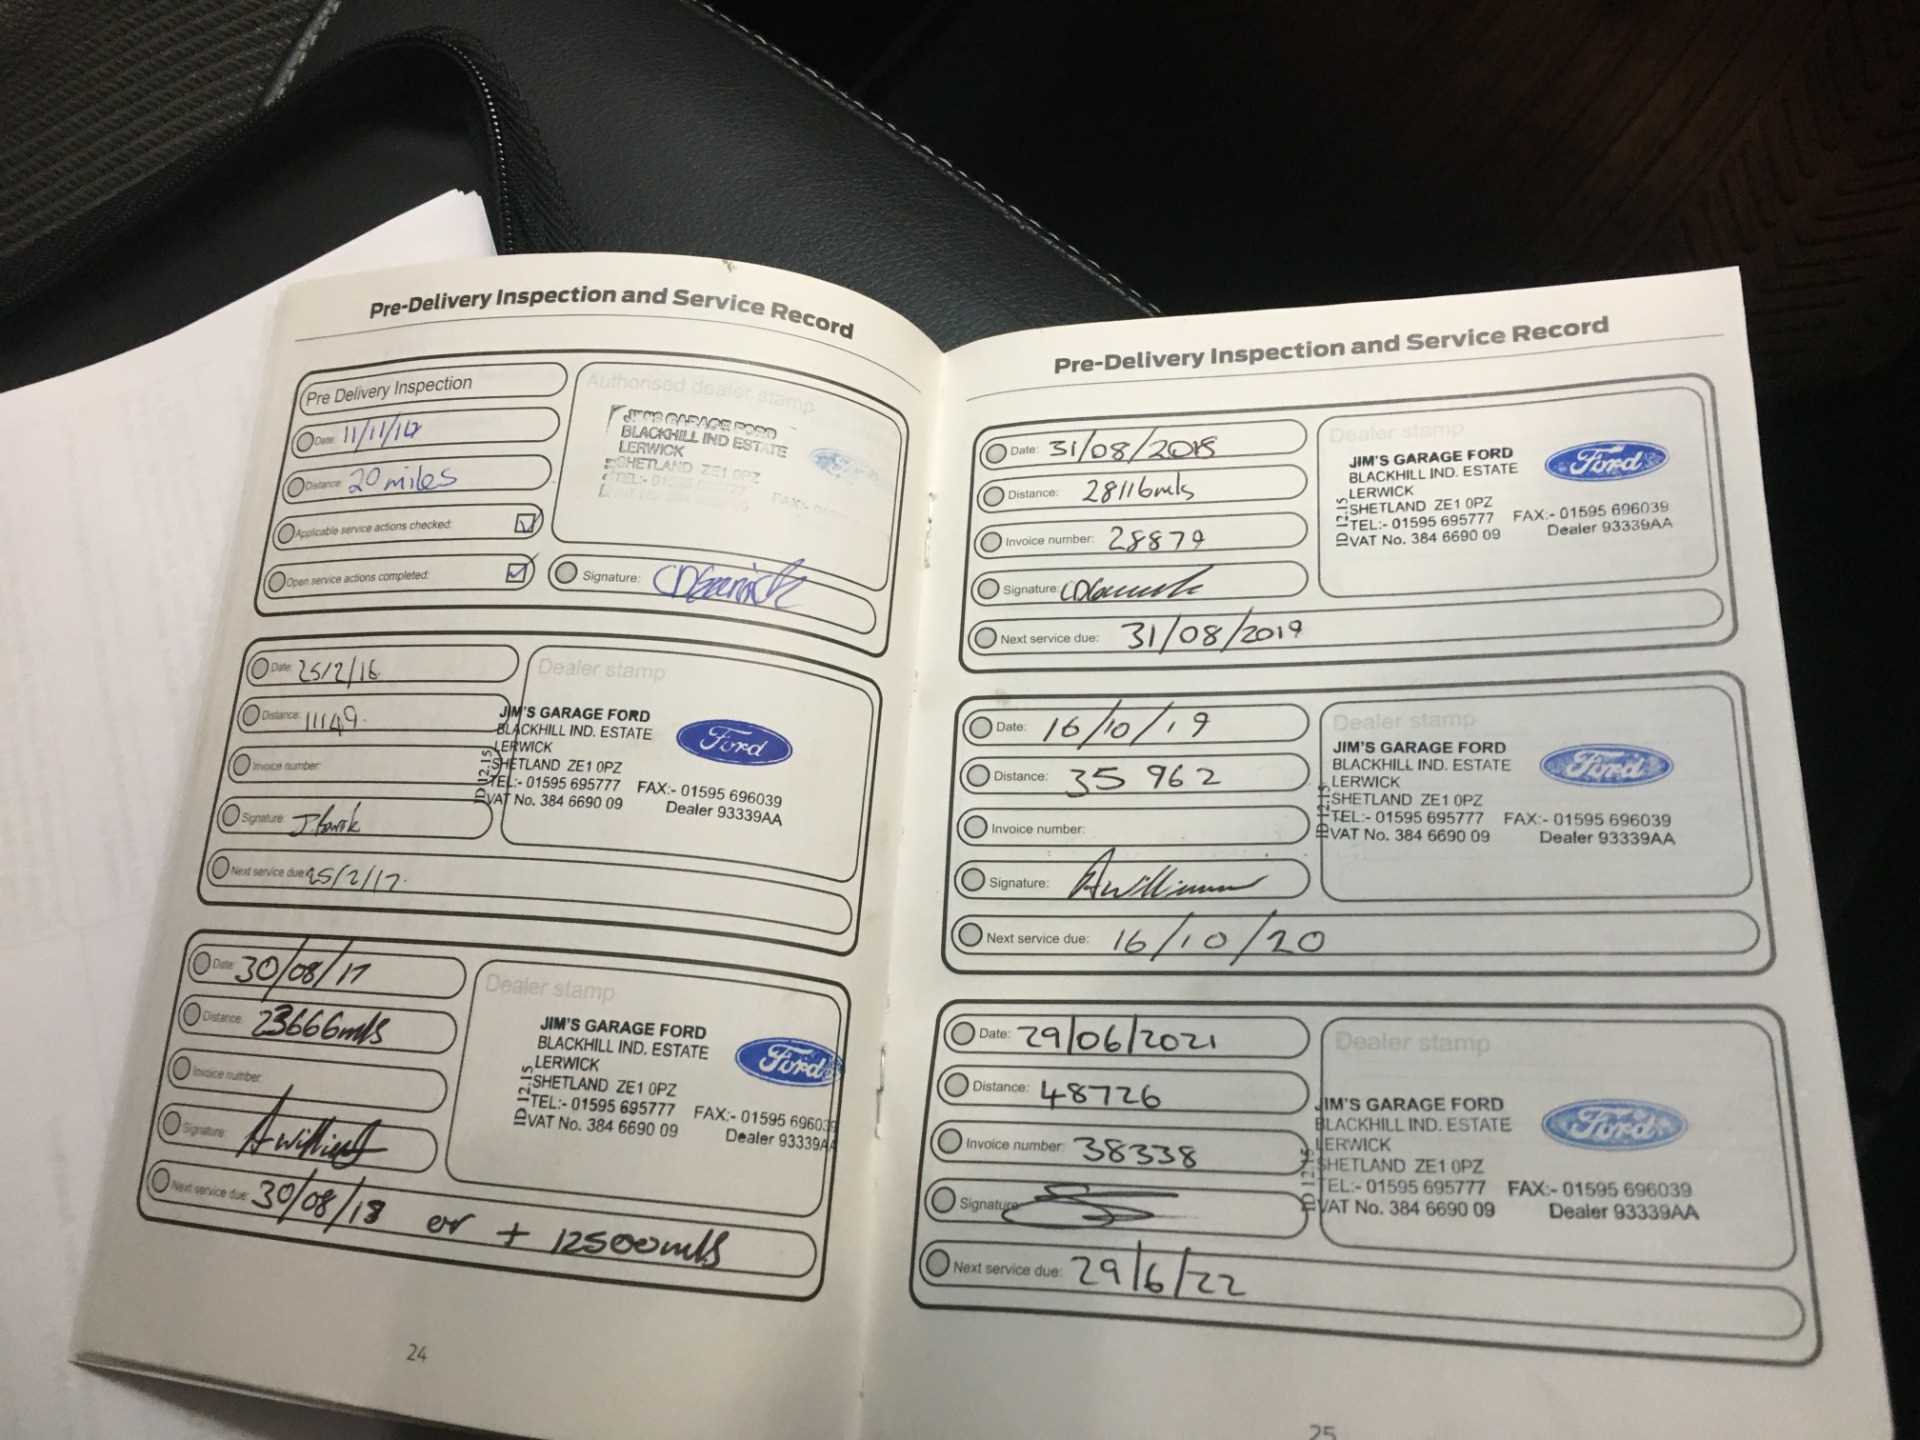 Pre-Delivery Inspection and Service Record
Pre Delivery Inspection
Date: 11/11/14
Distance: 20 miles
Applicable service actions checked:
Open service actions completed:
Authorised dealer stamp
JIM'S GARAGE FORD
BLACKHILL IND ESTATE
LERWICK
SHETLAND ZE1 0PZ
TEL:- 01595 695777 FAX:-
Ford
Signature:
Date: 25/2/16
Distance: 11149.
Invoice number:
Signature:
Next service due: 25/2/17.
Dealer stamp
JIM'S GARAGE FORD
BLACKHILL IND. ESTATE
LERWICK
SHETLAND ZE1 0PZ
TEL:- 01595 695777 FAX:- 01595 696039
VAT No. 384 6690 09 Dealer 93339AA
ID 12.15
Ford
Date: 30/08/17
Distance: 23666mls
Invoice number:
Signature:
Next service due: 30/08/18 or + 12500mls
Dealer stamp
JIM'S GARAGE FORD
BLACKHILL IND. ESTATE
LERWICK
SHETLAND ZE1 0PZ
TEL:- 01595 695777 FAX:- 01595 696039
VAT No. 384 6690 09 Dealer 93339AA
ID 12.15
Ford
24
Pre-Delivery Inspection and Service Record
Date: 31/08/2018
Distance: 28116mls
Invoice number: 28879
Signature:
Next service due: 31/08/2019
Dealer stamp
JIM'S GARAGE FORD
BLACKHILL IND. ESTATE
LERWICK
SHETLAND ZE1 0PZ
TEL:- 01595 695777 FAX:- 01595 696039
VAT No. 384 6690 09 Dealer 93339AA
ID 12.15
Ford
Date: 16/10/19
Distance: 35962
Invoice number:
Signature: A Williamson
Next service due: 16/10/20
Dealer stamp
JIM'S GARAGE FORD
BLACKHILL IND. ESTATE
LERWICK
SHETLAND ZE1 0PZ
TEL:- 01595 695777 FAX:- 01595 696039
VAT No. 384 6690 09 Dealer 93339AA
ID 12.15
Ford
Date: 29/06/2021
Distance: 48726
Invoice number: 38338
Signature:
Next service due: 29/6/22
Dealer stamp
JIM'S GARAGE FORD
BLACKHILL IND. ESTATE
LERWICK
SHETLAND ZE1 0PZ
TEL:- 01595 695777 FAX:- 01595 696039
VAT No. 384 6690 09 Dealer 93339AA
ID 12.15
Ford
25